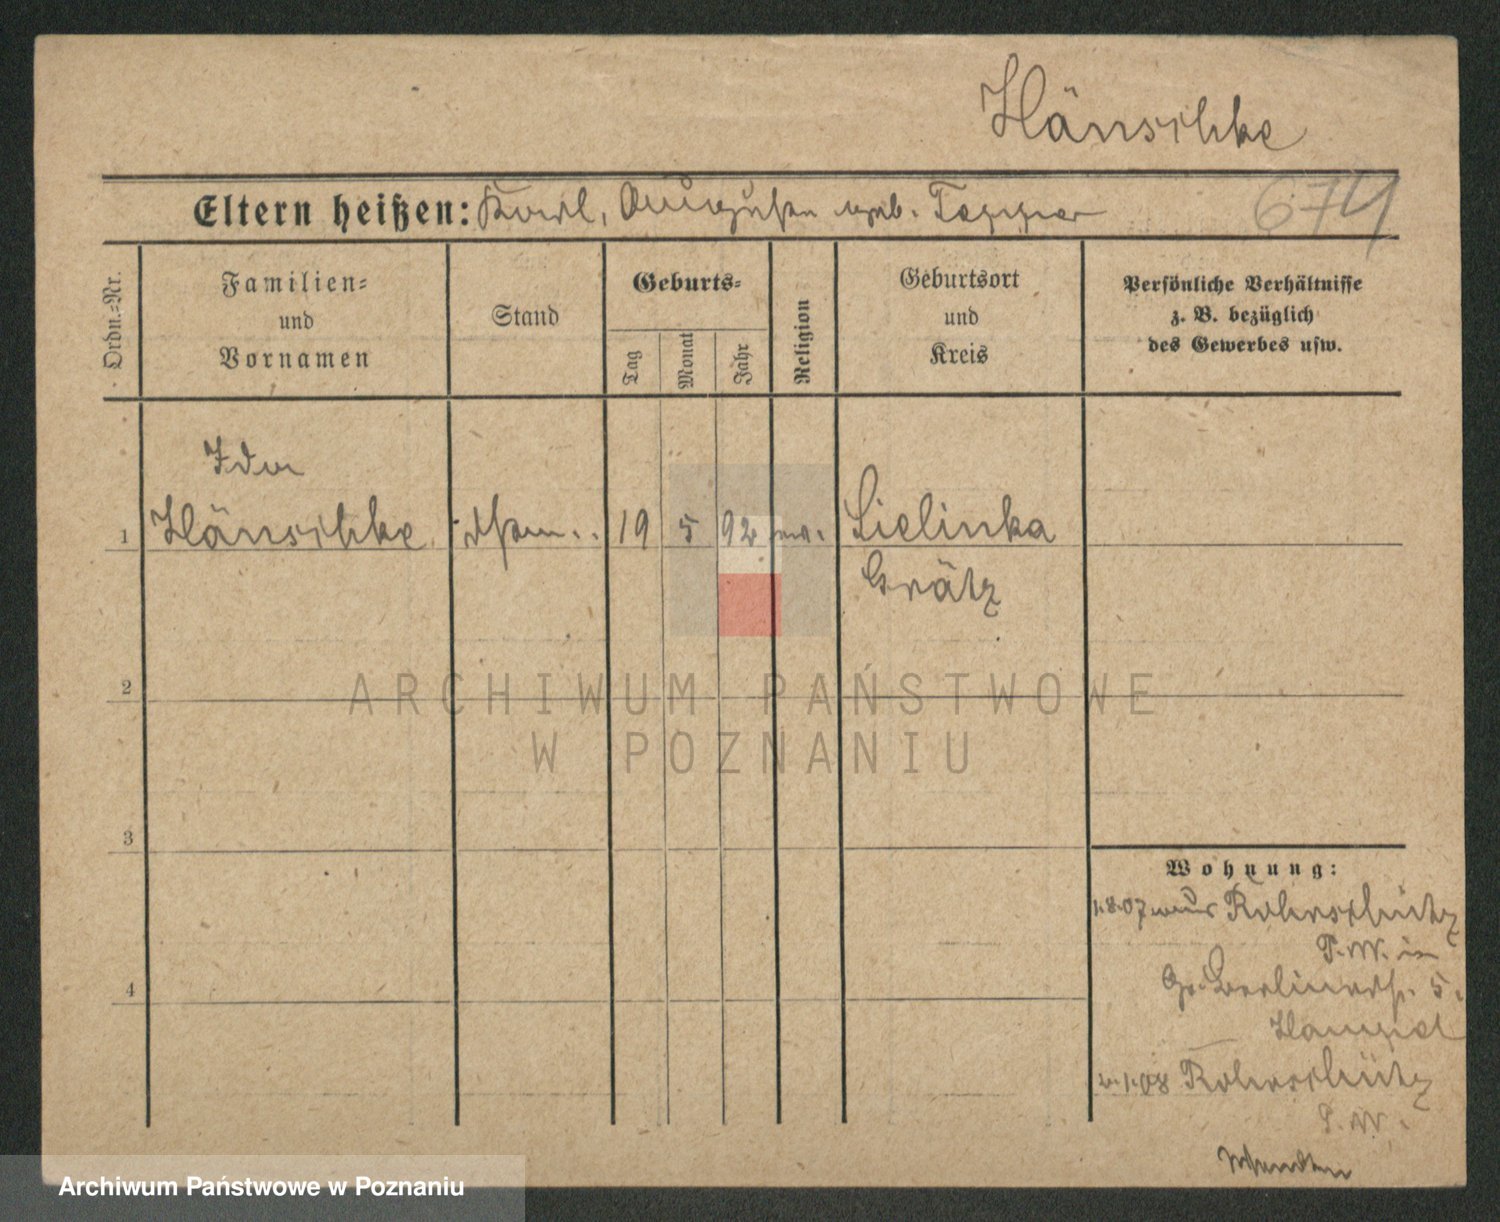 Hänschke
Eltern heißen: Karl, Auguste geb. Tepper
674
Ordn.-Nr.
Familien-
und
Vornamen
Stand
Geburts-
Tag
Monat
Jahr
Religion
Geburtsort
und
Kreis
Persönliche Verhältnisse
z. B. bezüglich
des Gewerbes usw.
Ida
1 Hänschke 19 5 92 ev. Sielinka
Grätz
2
ARCHIWUM PAŃSTWOWE
W POZNANIU
3
Wohnung:
1.8.07 aus Rohrschütz
P. W. in
Gr. Berlinerstr. 5.
4
2.1.08 Rohrschütz
P. W.
Archiwum Państwowe w Poznaniu